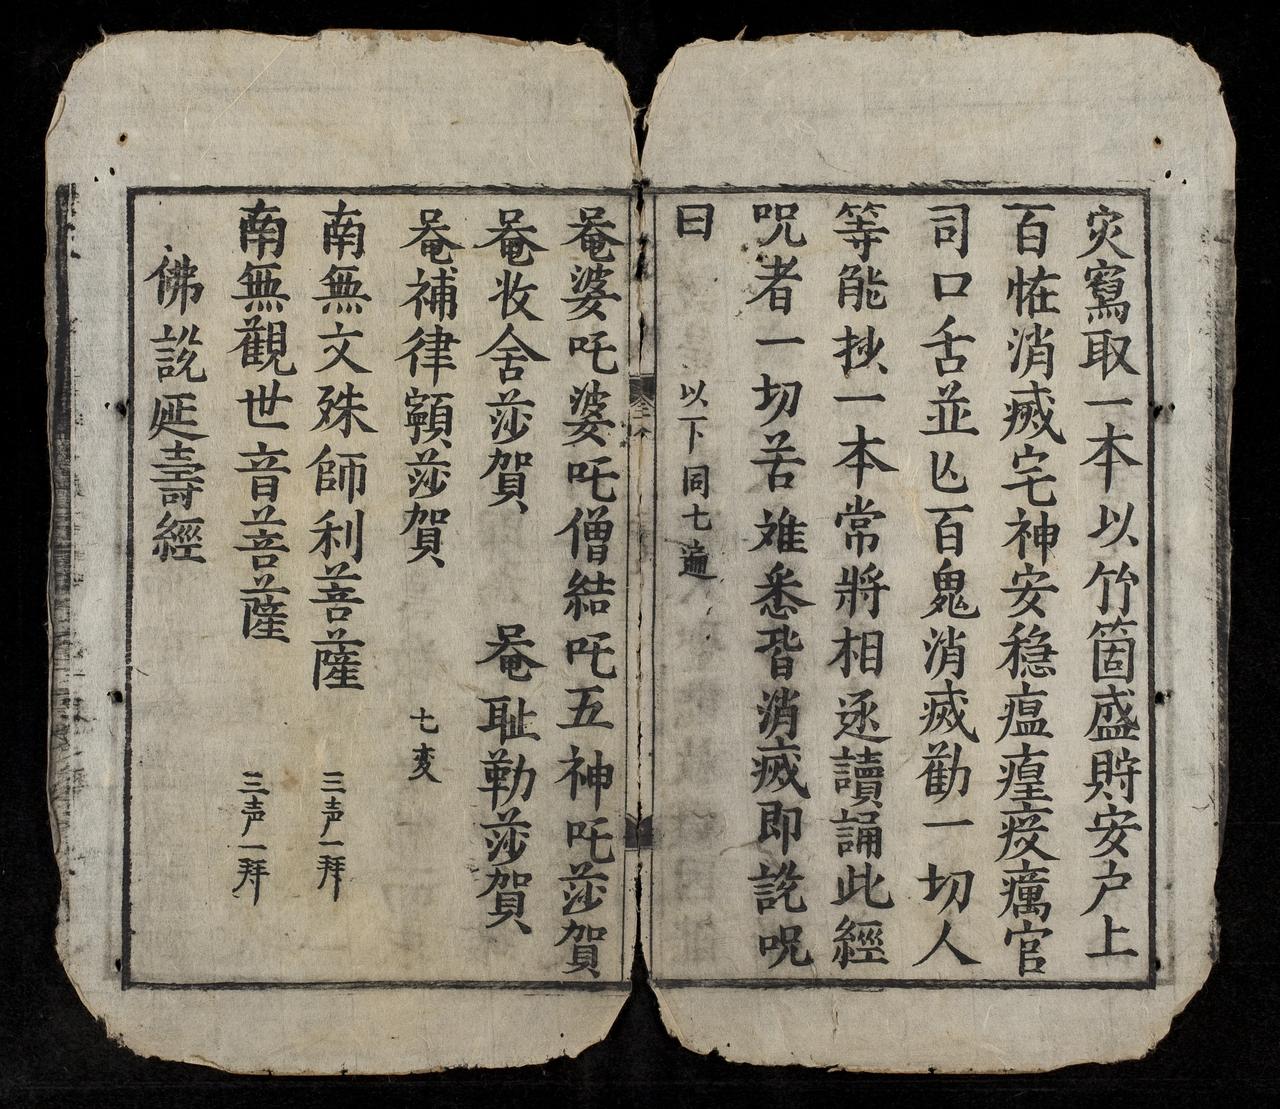 灾寫取一本以竹箇盛貯安户上
百恠消滅宅神安穩瘟瘴疫癘官
司口舌並亾百鬼消滅勸一切人
等能抄一本常將相逐讀誦此經
呪者一切苦难悉皆消滅即説呪
曰 以下同七遍
唵婆吒婆吒僧結吒五神吒莎賀
唵收舍莎賀 唵耻勒莎賀
唵補律顙莎賀 七交
南無文殊師利菩薩 三声一拜
南無觀世音菩薩 三声一拜
佛説延壽經